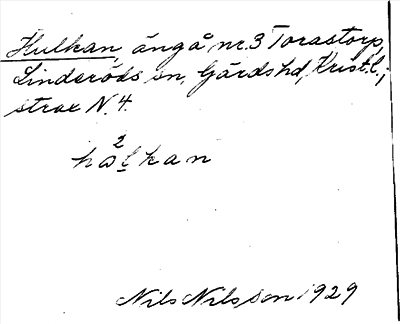 Hulkan, ängå, nr. 3 Torastorp,
Linderöds sn, Gärds hd, Krist. l.;
strax N. 4.
2
hωl̲kan
Nils Nilsson 1929